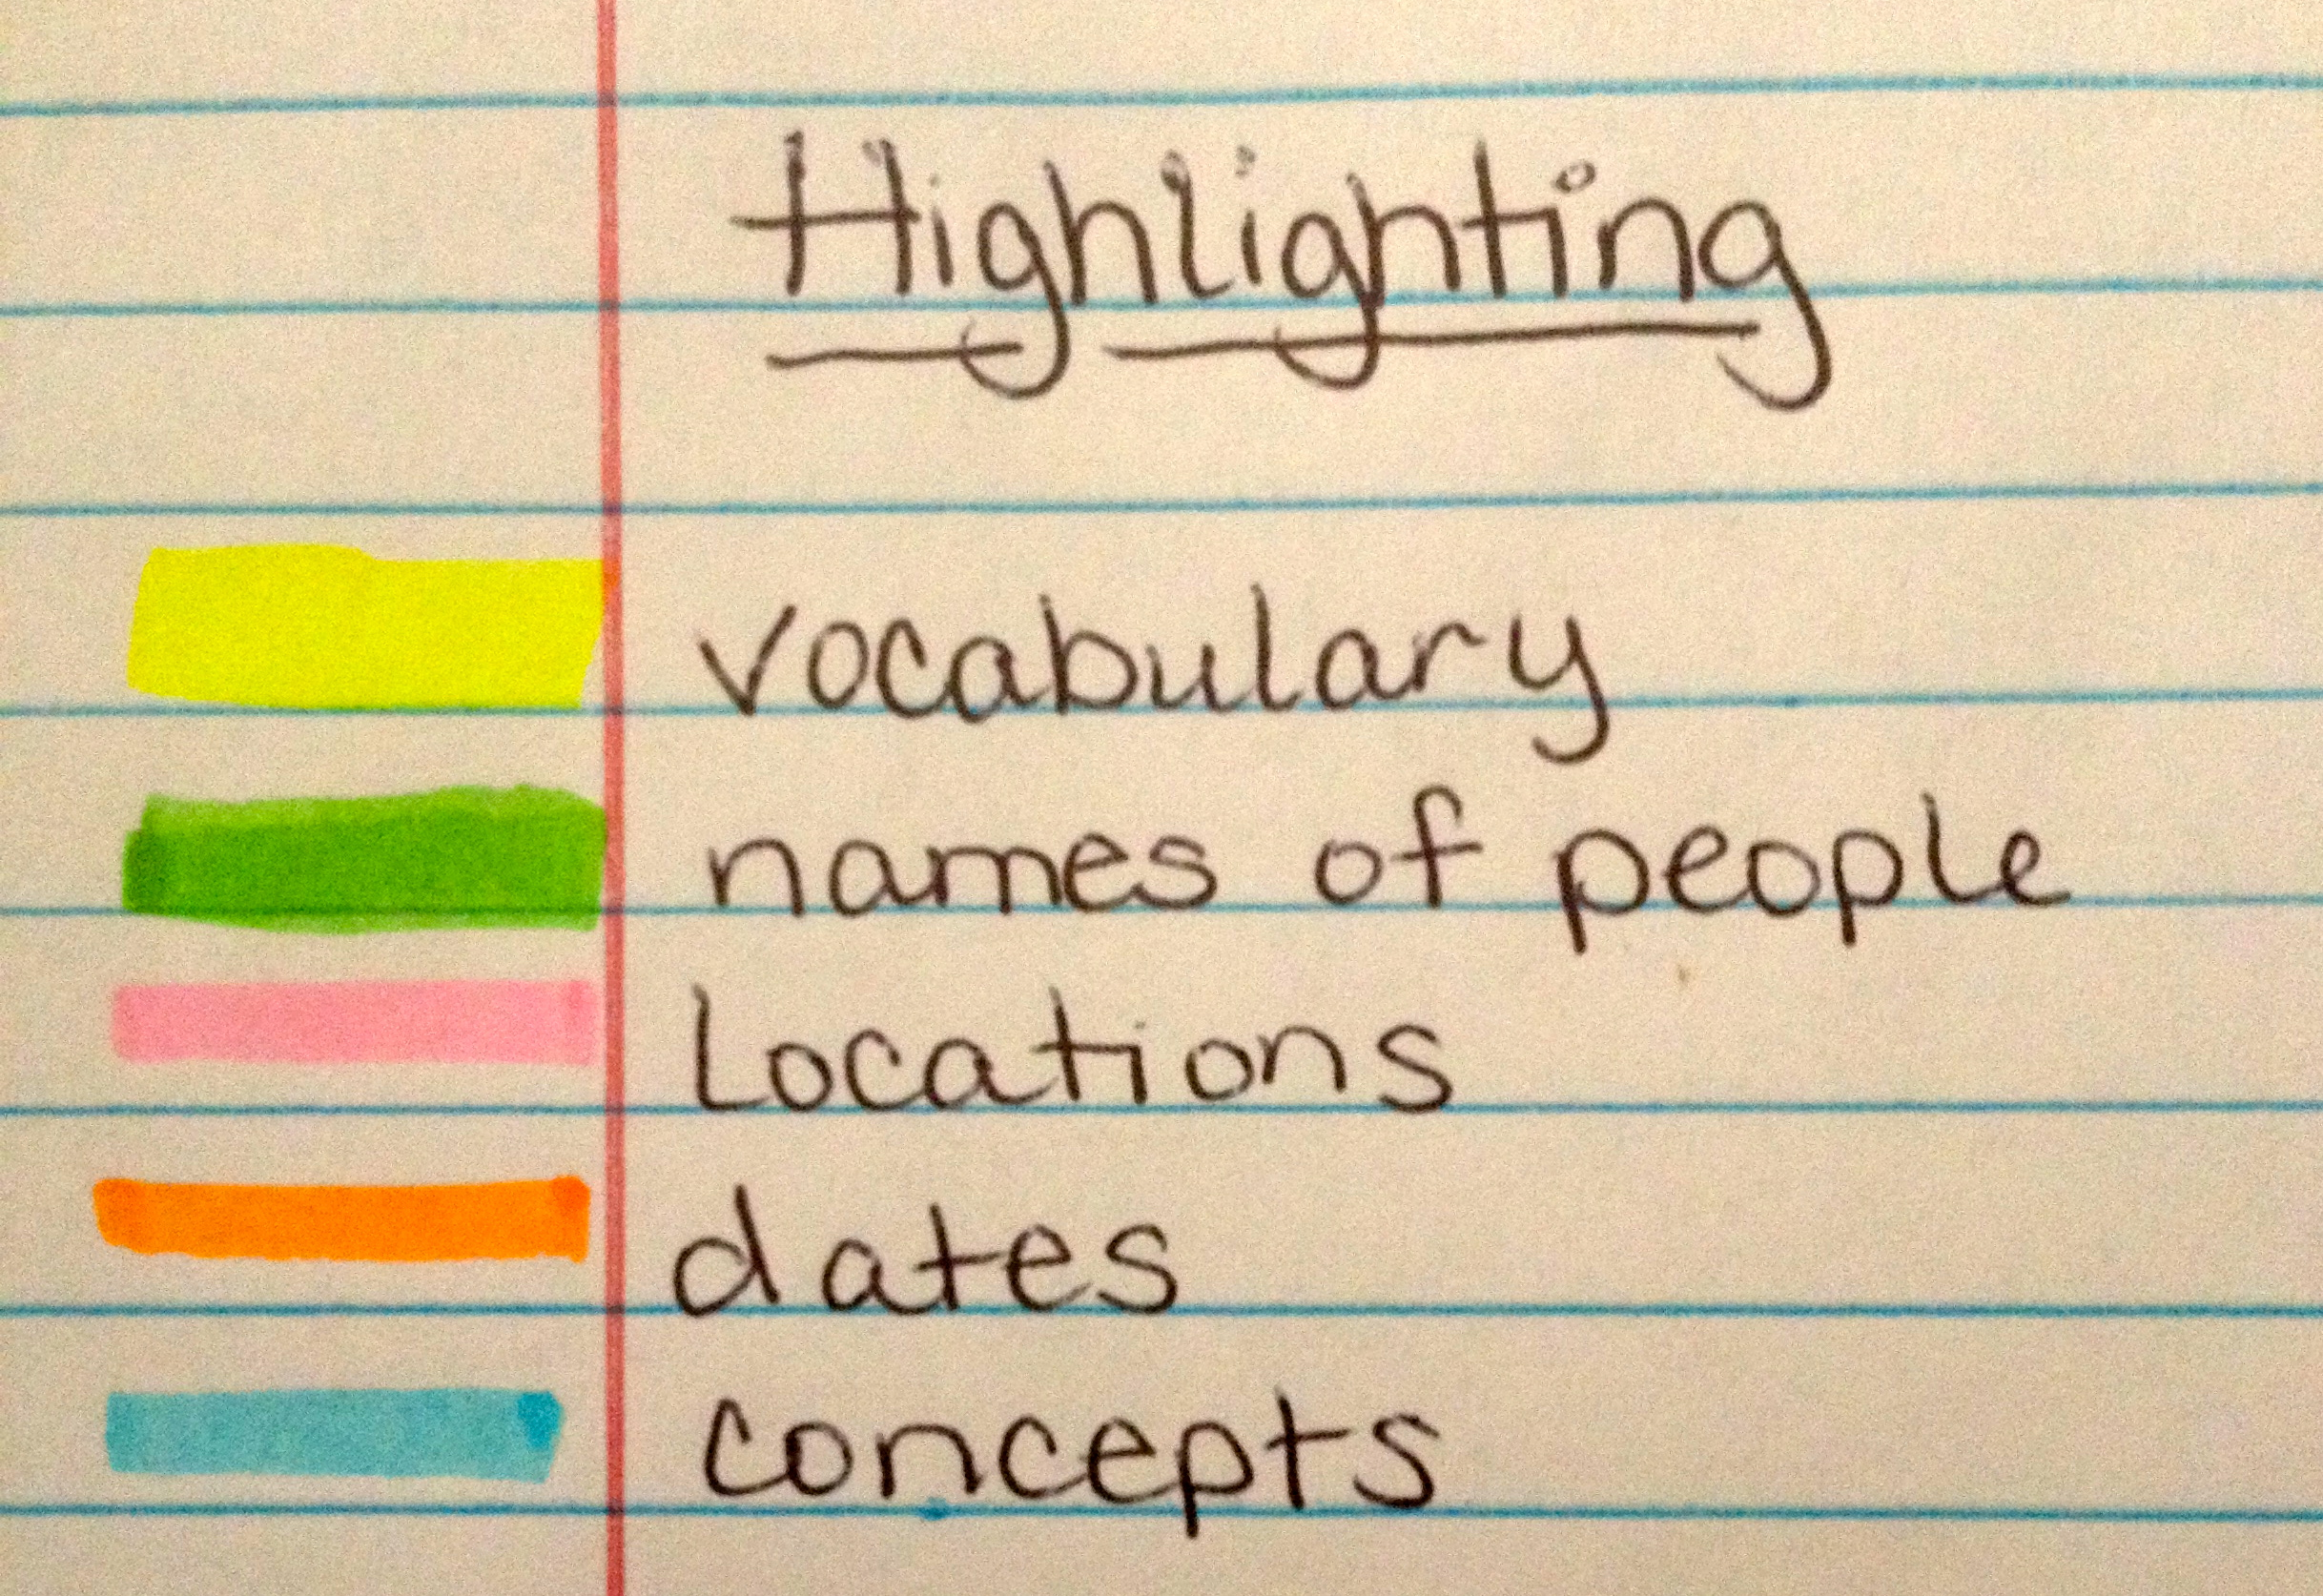 Highlighting
vocabulary
names of people
Locations
dates
concepts